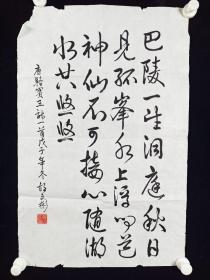 巴陵一望洞庭秋日
见孤峰水上浮闻道
神仙不可接心随湖
水共悠悠
唐骆宾王诗一首戊子年冬